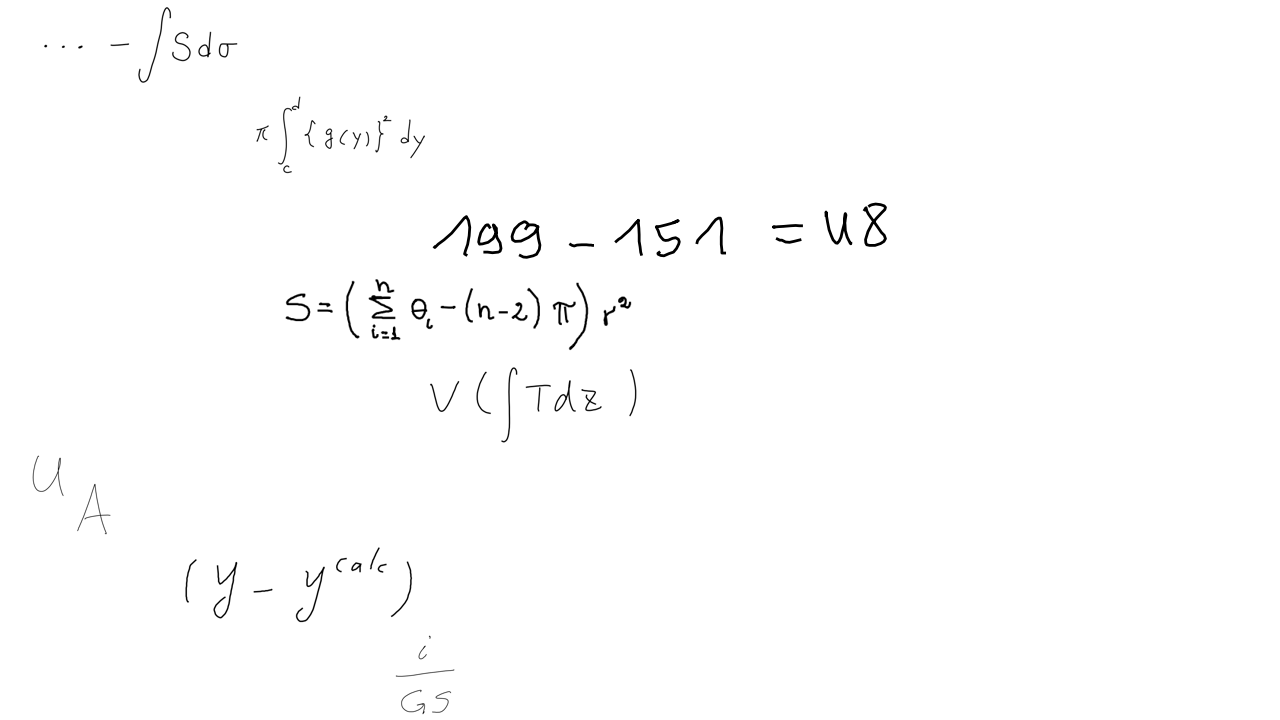 ... - ∫Sdσ
π∫_c^d {g(y)}² dy
199 - 151 = 48
S = (∑_{i=1}^{n} θ_i - (n-2) π) r²
V (∫Tdz )
u_A
(y - y^{calc})
i/GS